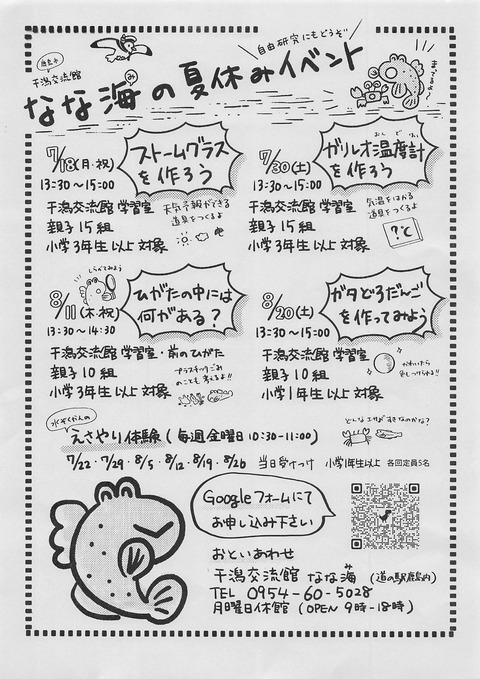 自由研究にもどうぞ
鹿島市
干潟交流館
なな海の夏休みイベント
み
まってるよ〜
7/18(月・祝)
13:30〜15:00
ストームグラス
を作ろう
干潟交流館 学習室
親子15組
小学3年生以上対象
天気予報ができる
道具をつくるよ
7/30(土)
13:30〜15:00
ガリレオ温度計
おんどけい
を作ろう
干潟交流館 学習室
親子15組
小学3年生以上対象
気温をはかる
道具をつくるよ
?℃
しらべてみよう
8/11(木・祝)
13:30〜14:30
ひがたの中には
何がある?
干潟交流館 学習室・前のひがた
親子10組
小学3年生以上対象
プラスチックごみ
のことも考えるよ!!
8/20(土)
13:30〜15:00
ガタどろだんご
を作ってみよう
干潟交流館 学習室
親子10組
小学1年生以上対象
かわいたら
色もつけられる!!
水ぞくかんの
えさやり体験(毎週金曜日10:30-11:00)
どんなエサがすきなのかな?
7/22・7/29・8/5・8/12・8/19・8/26 当日受けつけ 小学1年生以上 各回定員5名
Googleフォームにて
お申し込み下さい
おといあわせ
干潟交流館 なな海 (道の駅鹿島内)
み
TEL 0954-60-5028
月曜日休館 (OPEN 9時-18時)